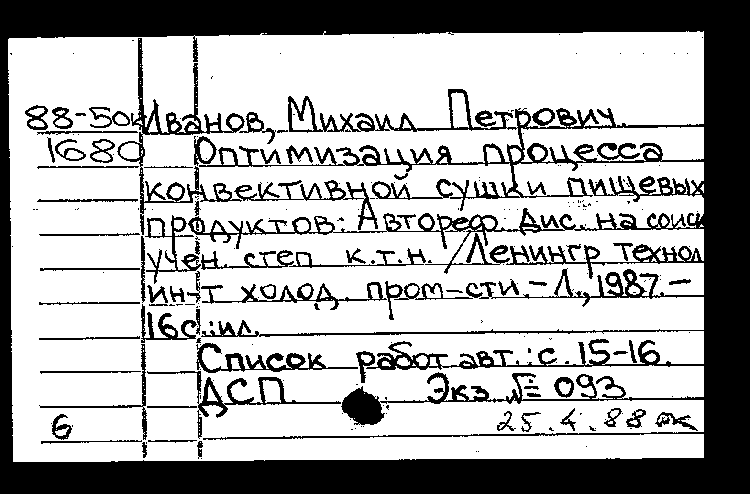 88-50к Иванов, Михаил Петрович.
1680 Оптимизация процесса
конвективной сушки пищевых
продуктов: Автореф. дис. на соиск
учен. степ к.т.н. / Ленингр технол
ин-т холод. пром-сти. - Л., 1987. -
16с.: ил.
Список работ авт.: с. 15-16.
ДСП. Экз. № 093
6 25.4.88